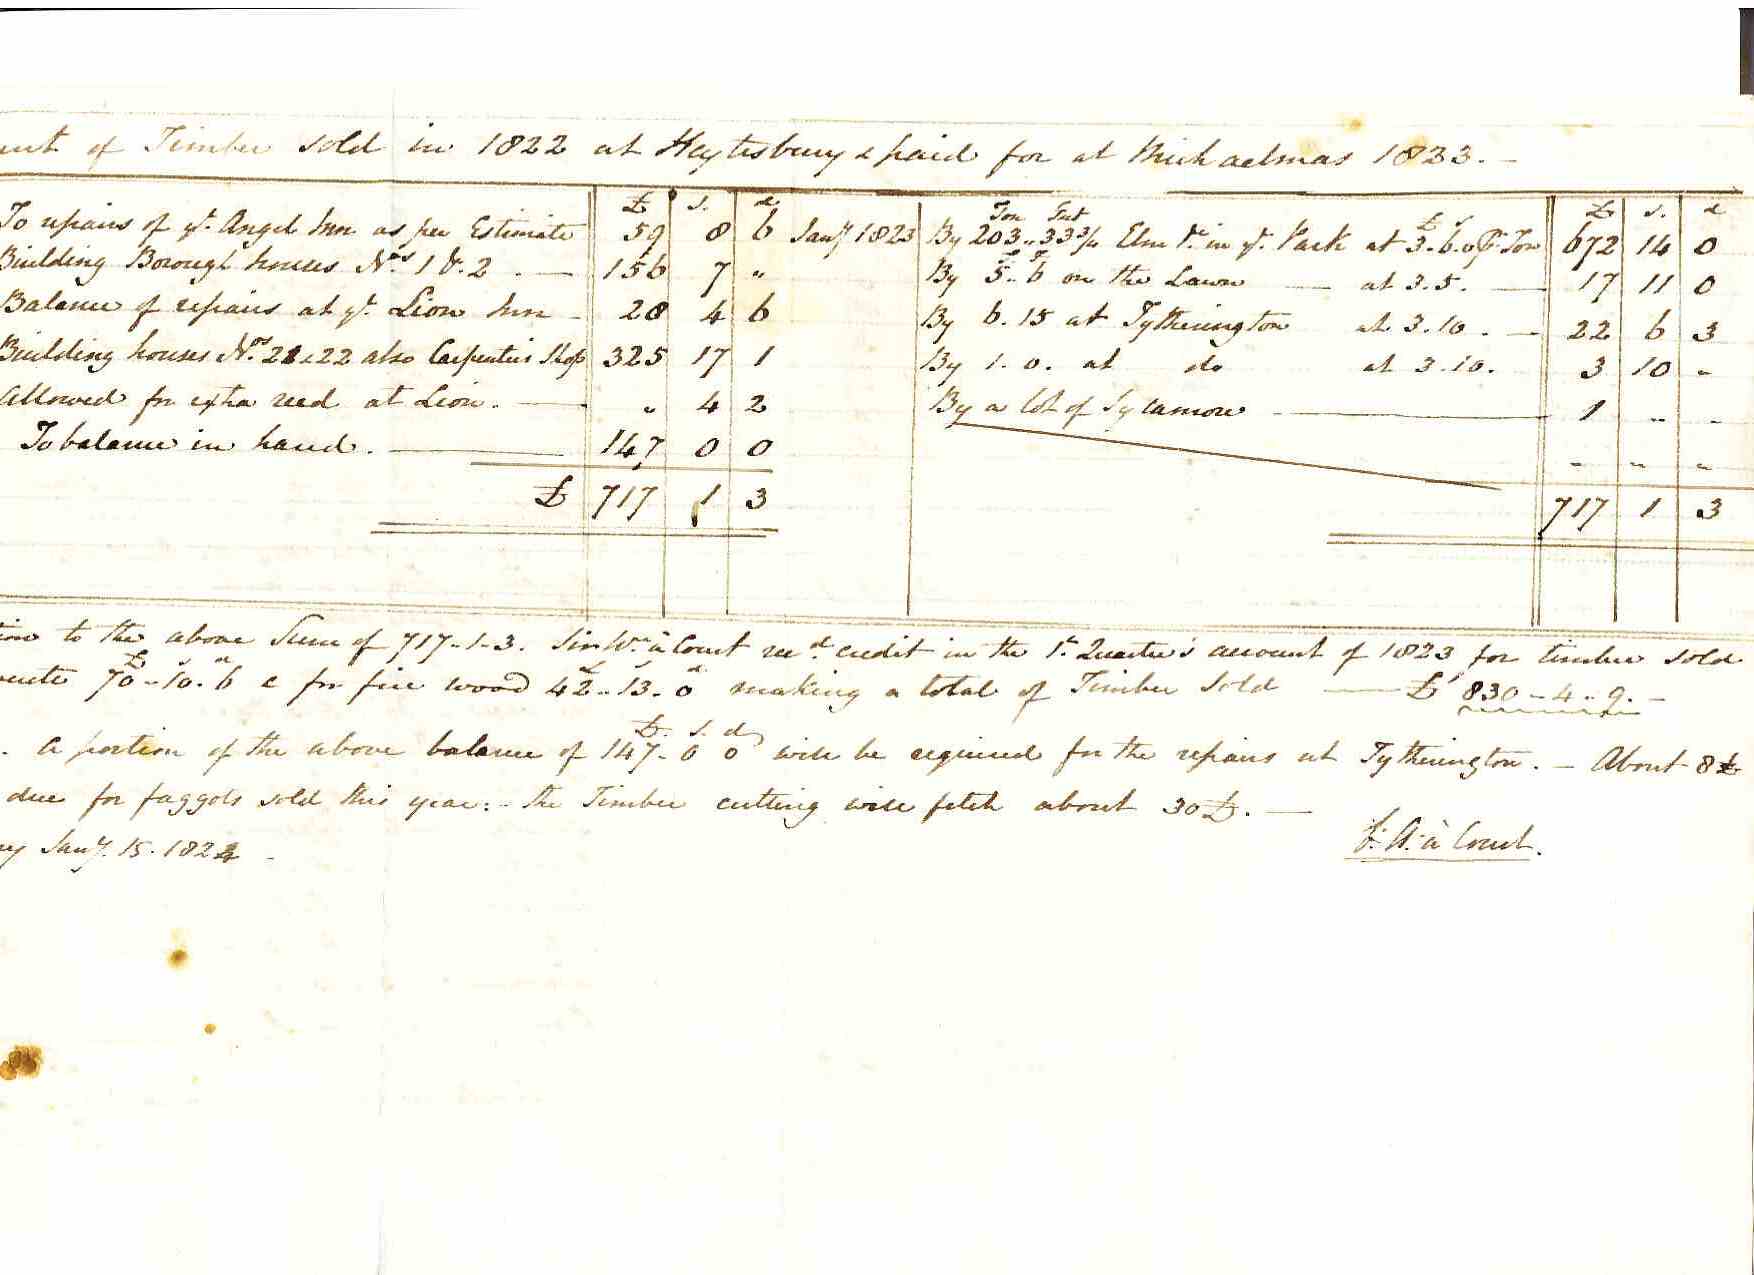 unt of Timber sold in 1822 at Heytesbury & paid for at Michaelmas 1823. -
£ s. d
To repairs of ye. Angel Inn as per Estimate 59 8 6
Building Borough houses Nos. 1 & 2 . — 156 7 "
Balance of repairs at ye. Lion Inn - 28 4 6
Building houses Nos. 21 & 22 also Carpenters Shop 325 17 1
Allowed for extra reed at Lion. — " 4 2
To balance in hand. — 147 0 0
£ 717 1 3
Ton Feet £ s. £ s. d
Jany 1823 By 203 .. 33 3/4 Elm Tr. in ye. Park at 3. 6. 0 Pr. Ton 672 14 0
By 5 .. 6 on the Lawn — at 3. 5. — 17 11 0
By 6. 15 at Tytherington at 3. 10 . — 22 6 3
By 1. 0. at do at 3. 10. 3 10 -
By a lot of Sycamore — 1 .. -
- " "
717 1 3
tion to the above Sum of 717-1-3. Sir Wm. à Court recd. credit in the 1st. Quarter's account of 1823 for timber sold
£ s d £ s d
70-10-6 & for fire wood 42-13-0 making a total of Timber Sold — £ 830-4-9. -
£. s. d
. A portion of the above balance of 147- 0 0 will be required for the repairs at Tytherington. - About 8£
due for faggots sold this year: - the Timber cutting will fetch about 30£. —
ry Jany. 15. 1824 - à Court.